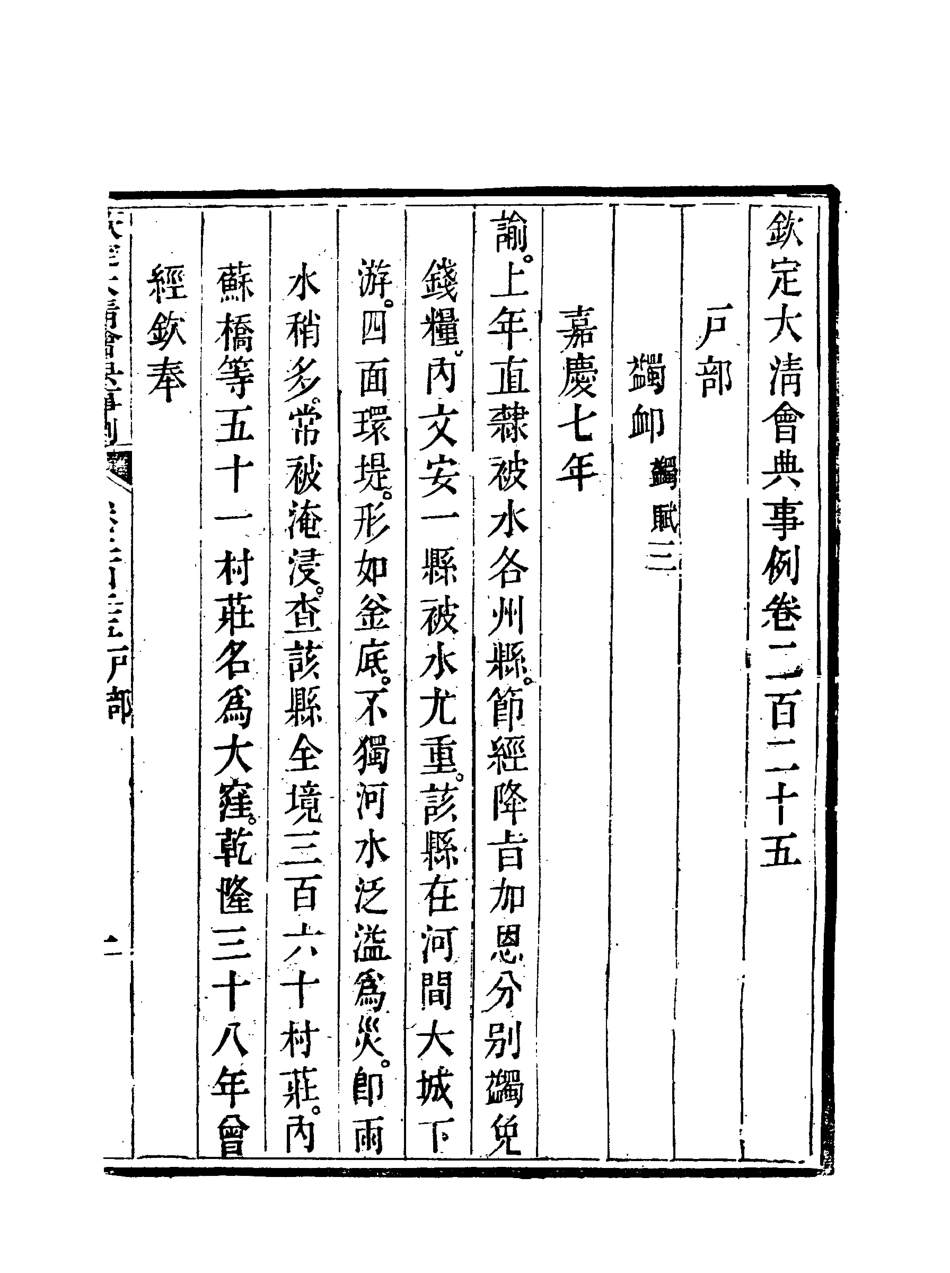 欽定大清會典事例卷二百二十五
戸部
蠲卹蠲賦三
嘉慶七年
諭。上年直隸被水各州縣。節經降旨加恩分別蠲免
錢糧。內文安一縣被水尤重。該縣在河間大城下
游。四面環堤。形如釜底。不獨河水泛濫爲災。卽雨
水稍多。常被淹浸。查該縣全境三百六十村莊。內
蘇橋等五十一村莊名爲大窪。乾隆三十八年曾
經欽奉
欽定大清會典事例 卷二百二十五戸部 一